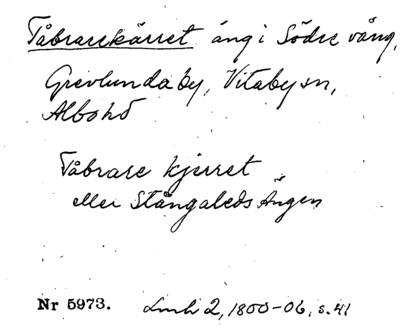 Tåbrarekärret äng i Södre vång,
Grevlunda by, Vitaby sn,
Albo hd
Tåbrare kjerret
eller Stångaleds Ängen
Nr 5973. Lmh 2, 1800-06, s. 41